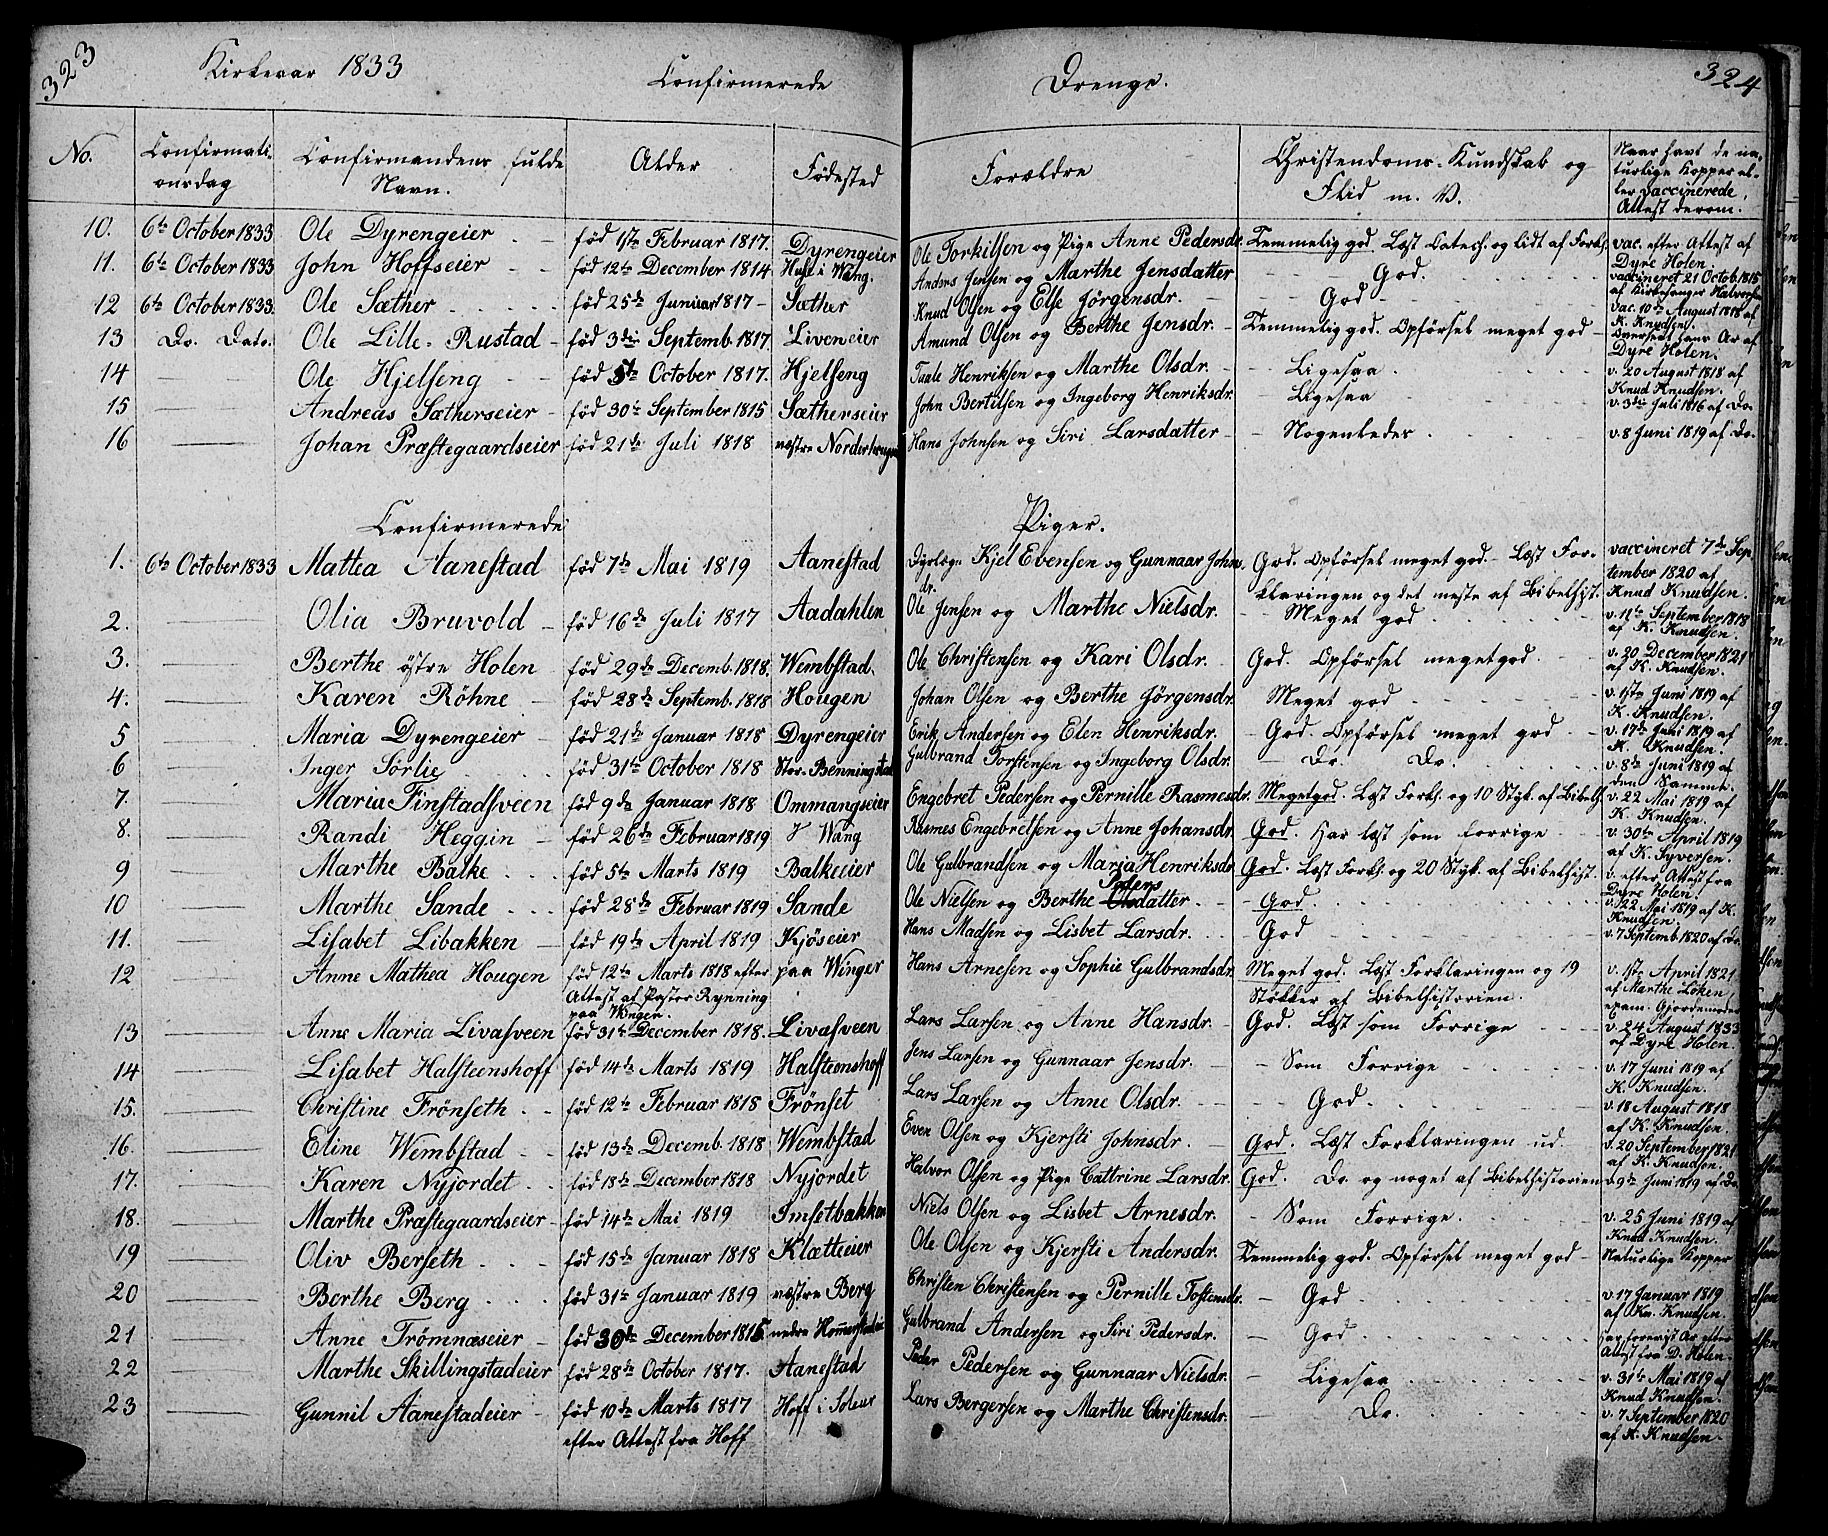 323
Kirkeaar 1833 Confirmerede Drenge. 324
No. Confirmati- Confirmandens fulde Alder Fødested Forældre Christendoms-Kundskab og Naar havt de na-
onsdag Navn. Flid m. V. turlige Kopper el-
ler vaccinerede.
Attest derom.
10. 6te October 1833 Ole Dyrengeier født 1ste Februar 1817. Dyrengeier Ole Torkilsen og Pige Anne Pedersdr. Temmelig god Læst Catech. og lidt af Forkl. vac. efter Attest af
Dyre Holen.
11. 6te October 1833 John Hoffseier født 12te December 1814 Huse i Wang. Anders Jensen og Marthe Jensdatter God. vaccineret 21 Octob. 1815
af Kirkesanger Halvorsen
12 6te October 1833. Ole Sæther født 25de Januar 1817 Sæther Knud Olsen og Else Jørgensdr. God vac. 10de August 1818 af
K. Knudsen.
13 Do. Dato. Ole Lille-Rustad født 3die Septemb. 1817. Liveneier Amund Olsen og Berthe Jensdr. Temmelig god. Opførsel meget god Ar af
Dyre Holen.
14 Ole Hjelseng født 5te October 1817. Hjelseng Taale Henriksen og Marthe Olsdr. Ligesaa v. 20 August 1818 af
Knud Knudsen.
15 Andreas Sætherseier født 30te September 1815 Sætherseier John Bertilsen og Ingeborg Henriksdr. Ligesaa v. 3die Juli 1816 af Do.
16 Johan Præstegaardseier født 21de Juli 1818 næstre Norderhougen Hans Johnsen og Siri Larsdatter Nogenledes v. 8 Juni 1819 af Do.
Confirmerede Piger.
1. 6te October 1833 Mattea Aanestad født 7de Mai 1819 Aanestad Dyrlæge Kjel Evensen og Gunnaar Johns- God. Opførsel meget god. Læst For- vaccineret 7de Sep-
dr. klaringen og det meste af Bibelhist. tember 1820 af
Knud Knudsen.
2. Olia Bruvold født 16de Juli 1817 Aadahlen Ole Jensen og Marthe Nielsdr. Meget god v. 11te September 1818
af K. Knudsen.
3. Berthe østre Holen født 29de Decemb. 1818. Wembstad. Ole Christensen og Kari Olsdr. God. Opførsel meget god. v. 20 December 1821
af K. Knudsen.
4. Karen Röhne født 28de Septemb. 1818 Hougen Johan Olsen og Berthe Jörgensdr. Meget god v. 1ste Juni 1819 af
K. Knudsen.
5 Maria Dyrengeier født 21de Januar 1818 Dyrengeier Erik Andersen og Elen Henriksdr. God. Opførsel meget god v. 17de Juni 1819 af
K. Knudsen.
6 Inger Sörlie født 31te October 1818 Stor-Benningstad Gulbrand Torstensen og Ingeborg Olsdr. Do. Do. v. 8de Juni 1819 af
den Samme.
7. Maria Finstadsveen født 9de Januar 1818 Ommangseier Engebret Pedersen og Pernille Rasmesdr. Meget god. Læst Forkl. og 10 Styk. af Bibelh. v. 22 Mai 1819 af
K. Knudsen.
8. Randi Heggin født 26de Februar 1819 I Wang Rasmes Engebretsen og Anne Johansdr. God. Har læst som forrige v. 30te April 1819
af K. Syversen.
9 Marthe Balke født 5te Marts 1819 Balkeeier Ole Gulbrandsen og Maria Henriksdr. God. Læst Forkl. og 20 Styk. af Bibelhist. v. efter Attest fra
Dyre Holen.
10 Marthe Sande født 28de Februar 1819 Sande Ole Nielsen og Berthe Olsdatter God. v. 22 Mai 1819 af K.
Knudsen.
11. Lisabet Libakken født 19de April 1819 Kjöseier Hans Madsen og Lisbet Larsdr. God v. 7 Septemb. 1820 af Do.
12 Anne Mathea Hougen født 12te Marts 1818 efter paa Winger Hans Arnesen og Sophie Gulbrandsdr. Meget god. Læst Forklaringen og 19 v. 1ste April 1821
Attest af Pastor Rynning Støkker af Bibelhistorien. af Marthe Löken
paa Winger. exam. Gjordemoder
13 Anne Maria Livasveen født 31te December 1818. Livasveen Lars Larsen og Anne Hansdr. God. Læst som Forrige v. 24 August 1833
af Dyre Holen.
14 Lisabet Halsteenshoff født 14de Marts 1819 Halsteenshoff Jens Larsen og Gunnaar Jensdr. Som Forrige v. 17 Juni 1819 af
K. Knudsen.
15. Christine Frönseth født 12te Februar 1818 Frönset Lars Larsen og Anne Olsdr. God. v. 18 August 1818
af K. Knudsen.
16. Eline Wembstad født 13de Decemb. 1818 Wembstad Even Olsen og Kjersti Johnsdr. God. Læst Forklaringen ud. v. 20 September 1821
af K. Knudsen.
17. Karen Nyjordet født 18de December 1818 Nyjordet Halvor Olsen og Pige Cattrine Larsdr. God. Do. og noget af Bibelhistorien v. 9de Juni 1819 af Do.
18. Marthe Præstegaardseier født 14de Mai 1819 Imsetbakken Niels Olsen og Lisbet Arnesdr. Som Forrige. v. 25 Juni 1819 af
Knud Knudsen.
19 Oliv Berseth født 15de Januar 1818 Klætteeier Ole Olsen og Kjersti Andersdr. Temmelig god. Opførsel meget god Naturlige Kopper
20 Berthe Berg født 31te Januar 1819 næstre Berg Christen Christensen og Pernille Tostensdr. God v. 17 Januar 1819
af Kn. Knudsen.
21 Anne Trömnæseier født 30de December 1815 nedre Hommerstadeier Gulbrand Andersen og Siri Pedersdr. God Har forevist Ar efter
Attest fra D. Holen.
22 Marthe Skillingstadeier født 28de October 1817. Aanestad Peder Pedersen og Gunnaar Nielsdr. Ligesaa v. 31te Mai 1819 af
Knud Knudsen.
23 Gunnil Aanestadeier født 10de Marts 1817 Hoff i Soløer Lars Bergersen og Marthe Christensdr. Do. v. 7 September 1820
efter Attest fra Hoff af K. Knudsen.